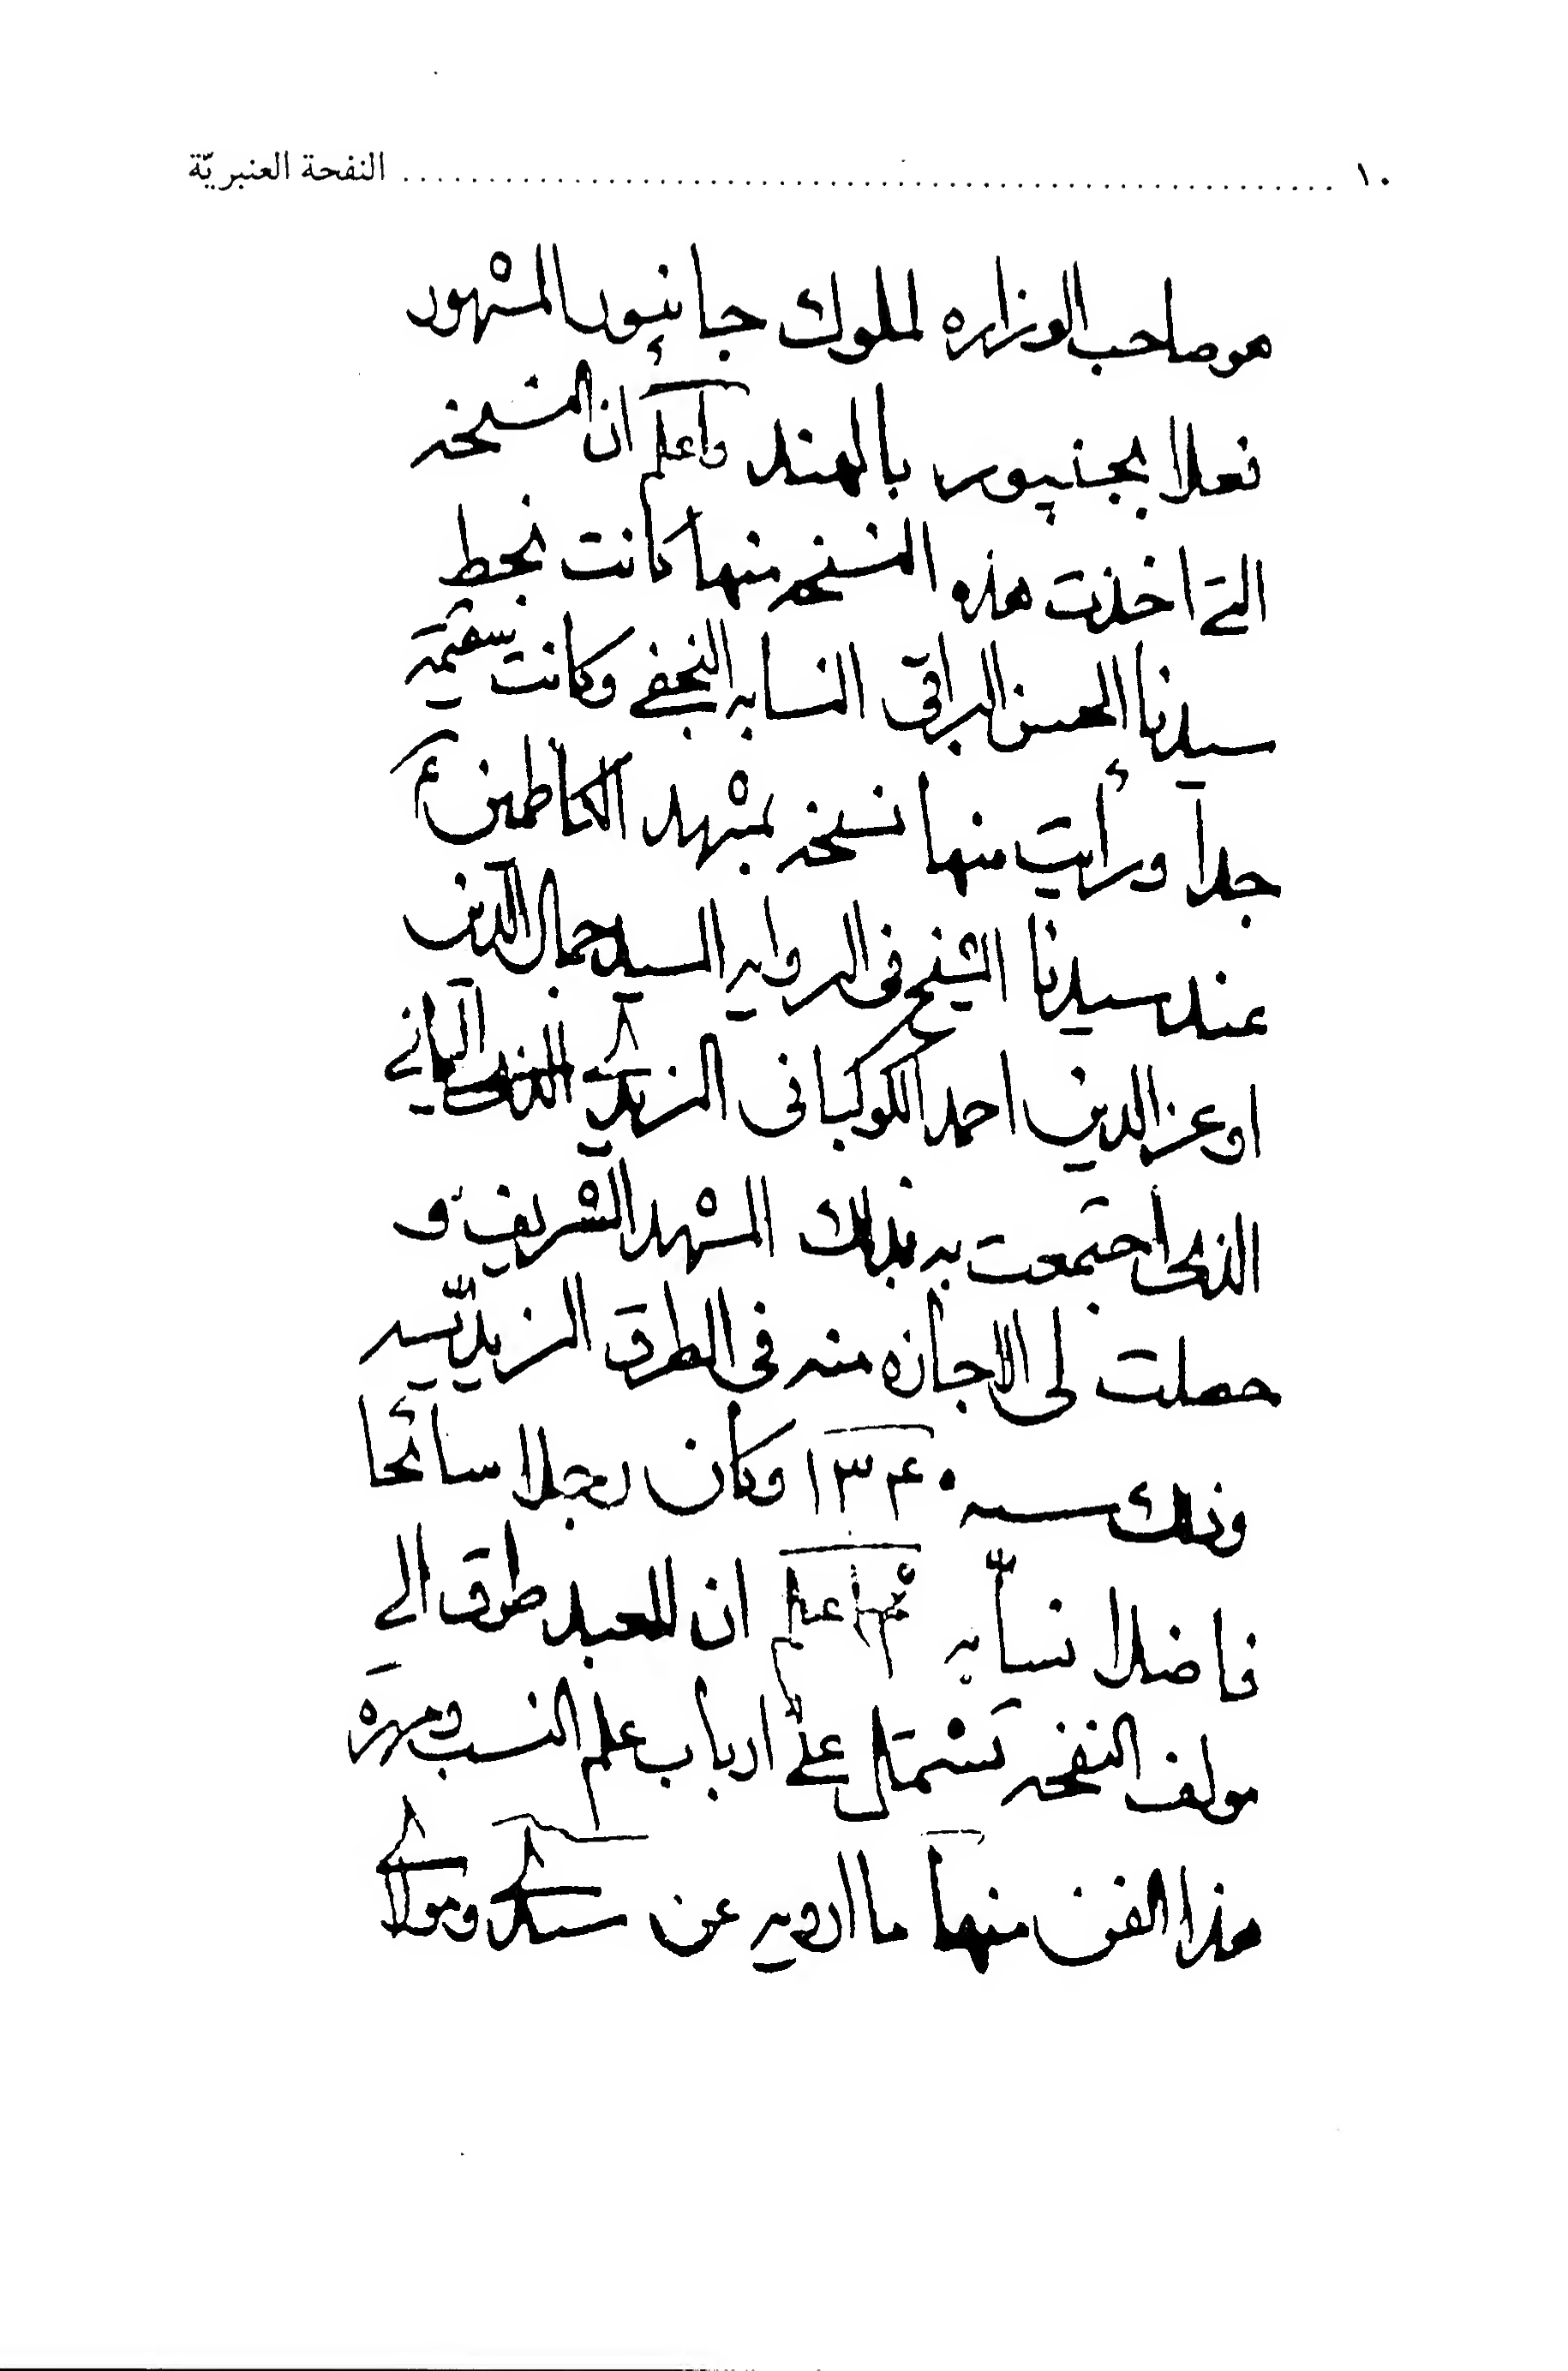 ١٠ ........................................ النفحة العنبريّة
هو صاحب الوزاره لملوك جانپور المشهور
فعلا بجنپور بالهند واعلم ان النسخه
التى اخذت هذه النسخه منها كانت بخط
سيدنا الحسن البراقى النسابه النجفى وكانت سقيمة
جدا ورأيت منها نسخه بمشهد الكاظمين ع
عند سيدنا الشيخ فى الروايه السيد جمال الدين
او عز الدين احمد الكوكبانى الزيدى اليمانى
الذى اجتمعت به بذلك المشهد الشريف و
حصلت لى الاجازه منه فى الطرق الزيديّه
وذلك سنه ١٣٤٠ وكان رجلا سائحا
فاضلا نسّابه ثم اعلم ان للعبد طرق الى
مولف النفحه تشتمل على ارباب علم النسب ومهرة
هذا الفن منها ما ارويه عن سيدى ومولاى